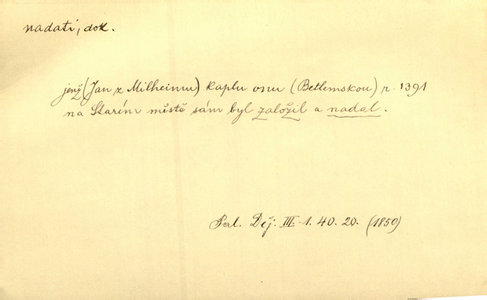 nadati, dok.
jenž (Jan z Milheimu) kaplu onu (Betlemskou) r. 1391
na Starém městě sám byl založil a nadal.
Pal. Děj. III. 1. 40. 20. (1850)